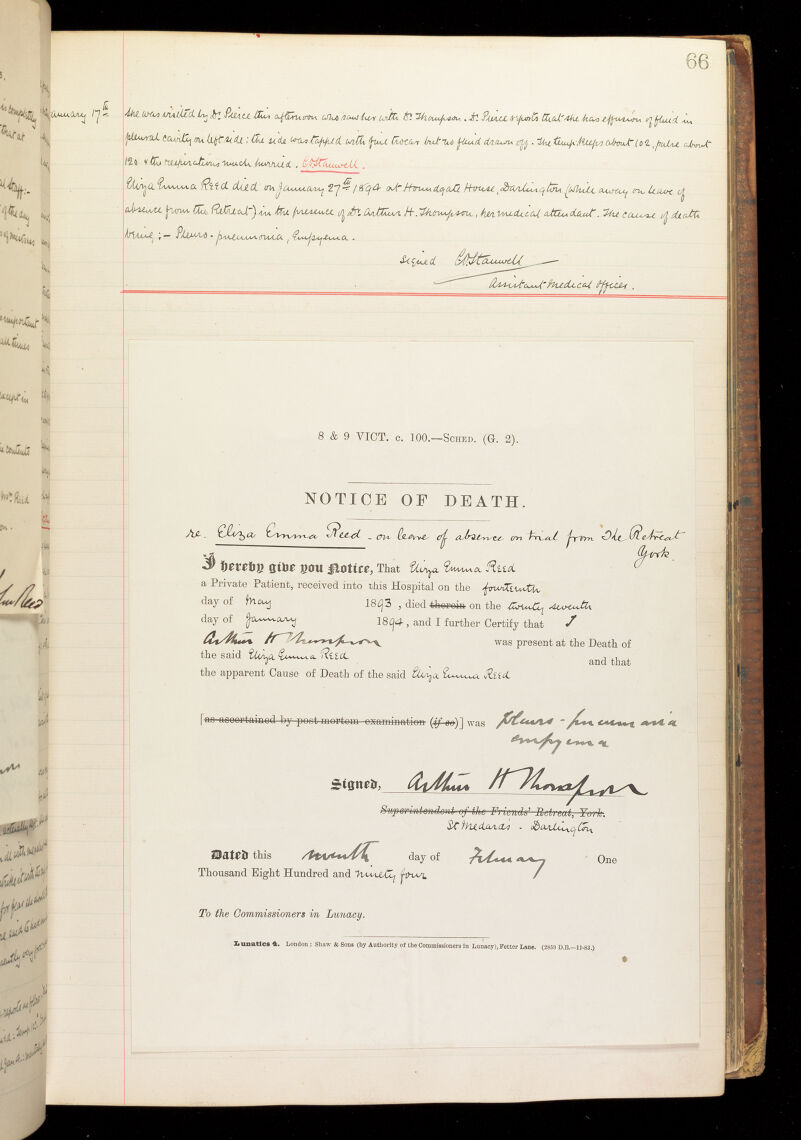 66
January 17th She was visited by Dr. Pierce this afternoon who saw her with Dr. Thompson. Dr. Pierce reports that she has effusion of fluid in
pleural cavity on left side: the side was tapped with fine trocar but no fluid drawn off. The temp. keeps about 102, pulse about
120 & the respirations much hurried. C. Stanwell.
Eliza Emma Reed died on January 27th 1894 at Houndgate House, Darlington (while away on leave of
absence from the Retreat) in the presence of Dr. Arthur H. Thompson, her medical attendant. The cause of death
being;- Pleuro-pneumonia, Empyema.
Signed Stanwell
Assistant Medical Officer.
8 & 9 VICT. c. 100.—SCHED. (G. 2).
NOTICE OF DEATH.
re. Eliza Emma Reed - on leave of absence on trial from The Retreat
York.
I hereby give you Notice, That Eliza Emma Reed
a Private Patient, received into this Hospital on the fourteenth
day of May 1893, died therein on the twenty seventh
day of January 1894, and I further Certify that I
Arthur H Thompson was present at the Death of
the said Eliza Emma Reed and that
the apparent Cause of Death of the said Eliza Emma Reed
[as ascertained by post mortem examination (if so)] was pleuro-pneumonia
empyema
Signed, Arthur H Thompson
Superintendent of the Friends' Retreat, York.
St Medards - Darlington
Dated this seventh day of February One
Thousand Eight Hundred and ninety four
To the Commissioners in Lunacy.
Lunatics 4. London: Shaw & Sons (by Authority of the Commissioners in Lunacy), Fetter Lane. (2859 D.B.—11-83.)